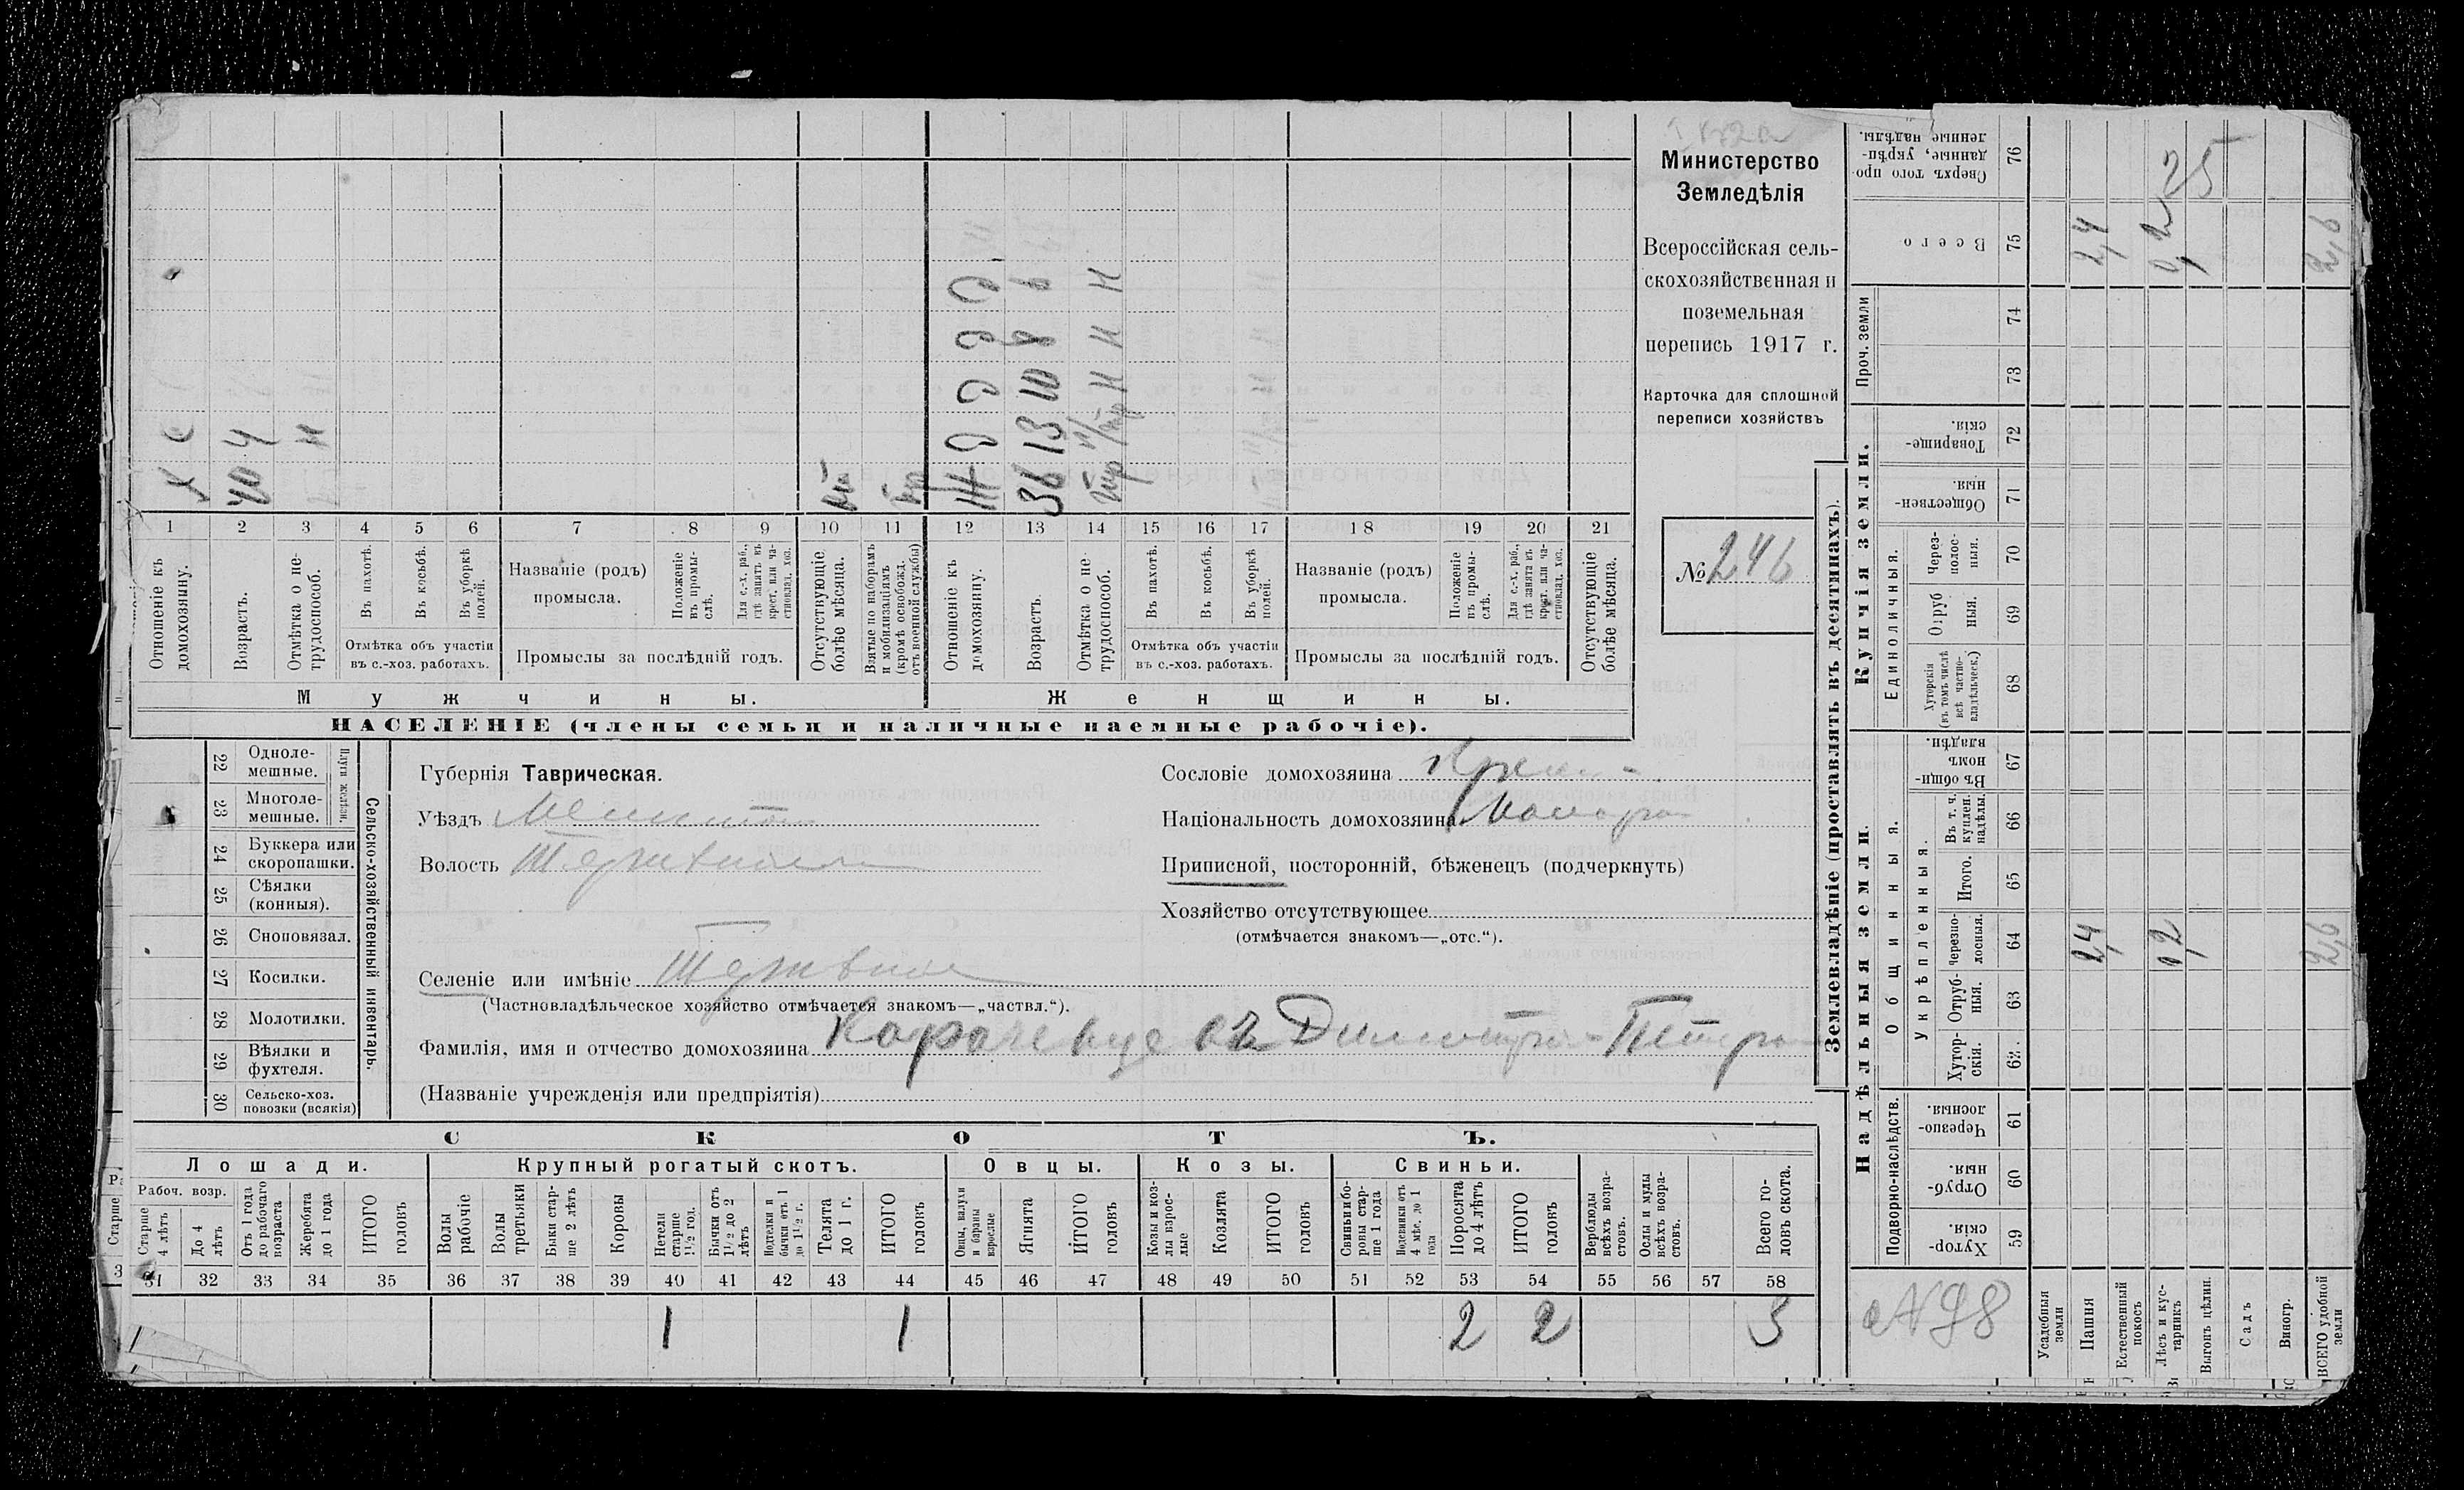 Министерство
Земледѣлія
Всероссійская сель-
скохозяйственная и
поземельная
перепись 1917 г.
Карточка для сплошной
переписи хозяйствъ
№ 246
Х С
40 4
Н
Ж Д Д Д Д
36 13 10 8 6
Н Н Н
1 2 3 4 5 6 7 8 9 10 11 12 13 14 15 16 17 18 19 20 21
Отношеніе къ домохозяину.
Возрастъ.
Отмѣтка о не-трудоспособ.
Въ пахотѣ.
Въ косьбѣ.
Въ уборкѣ полей.
Отмѣтка объ участіи
въ с.-хоз. работахъ.
Названіе (родъ)
промысла.
Положеніе въ промы-слѣ.
Для с.-х. раб., гдѣ занятъ въ крест. или ча-стновлад. хоз.
Промыслы за послѣдній годъ.
Отсутствующіе болѣе мѣсяца.
Взятые по наборамъ и мобилизаціямъ (кромѣ освобожд. отъ военной службы)
Отношеніе къ домохозяину.
Возрастъ.
Отмѣтка о не-трудоспособ.
Въ пахотѣ.
Въ косьбѣ.
Въ уборкѣ полей.
Отмѣтка объ участіи
въ с.-хоз. работахъ.
Названіе (родъ)
промысла.
Положеніе въ промы-слѣ.
Для с.-х. раб., гдѣ занята въ крест. или ча-стновлад. хоз.
Промыслы за послѣдній годъ.
Отсутствующіе болѣе мѣсяца.
Мужчины.
Женщины.
НАСЕЛЕНІЕ (члены семьи и наличные наемные рабочіе).
22 Одноле-мешные.
23 Многоле-мешные.
Плуги желѣзн.
24 Буккера или скоропашки.
25 Сѣялки (конныя).
26 Сноповязал.
27 Косилки.
28 Молотилки.
29 Вѣялки и фухтеля.
30 Сельско-хоз. повозки (всякія)
Сельско-хозяйственный инвентарь.
Губернія Таврическая.
Уѣздъ
Волость
Селеніе или имѣніе
(Частновладѣльческое хозяйство отмѣчается знакомъ—„частвл.“).
Фамилія, имя и отчество домохозяина
(Названіе учрежденія или предпріятія)
Сословіе домохозяина
Національность домохозяина
Приписной, посторонній, бѣженецъ (подчеркнуть)
Хозяйство отсутствующее
(отмѣчается знакомъ—„отс.“).
СКОТЪ.
Лошади.
Крупный рогатый скотъ.
Овцы.
Козы.
Свиньи.
Рабоч. возр.
Старше 4 лѣтъ
До 4 лѣтъ
Отъ 1 года до рабочаго возраста
Жеребята до 1 года
ИТОГО головъ
Волы рабочіе
Волы третьяки
Быки стар-ше 2 лѣтъ
Коровы
Нетели старше 1½ год.
Бычки отъ 1½ до 2 лѣтъ
Подтелки и бычки отъ 1 до 1½ г.
Телята до 1 г.
ИТОГО головъ
Овцы, валухи и бараны взрослые
Ягнята
ИТОГО головъ
Козы и коз-лы взрос-лые
Козлята
ИТОГО головъ
Свиньи и бо-ровы стар-ше 1 года
Подсвинки отъ 4 мѣс. до 1 года
Поросята до 4 лѣтъ
ИТОГО головъ
Верблюды всѣхъ возра-стовъ.
Ослы и мулы всѣхъ возра-стовъ.
Всего го-ловъ скота.
31 32 33 34 35 36 37 38 39 40 41 42 43 44 45 46 47 48 49 50 51 52 53 54 55 56 57 58
1 1 2 2 3
Землевладѣніе (проставлять въ десятинахъ).
Надѣльныя земли.
Купчія земли.
Проч. земли
Подворно-наслѣдств.
Общинныя.
Укрѣпленныя.
Единоличныя.
Хутор-скія. 59
Отруб-ныя. 60
Черезпо-лосныя. 61
Хутор-скія. 62
Отруб-ныя. 63
Черезпо-лосныя. 64
Итого. 65
Въ т. ч. куплен. надѣлы. 66
Въ общин-номъ владѣн. 67
Хуторскія (въ томъ числѣ всѣ частно-владѣльческ.) 68
Отруб ныя. 69
Через-полос-ныя. 70
Обществен-ныя. 71
Товарище-скія. 72
73
74
Всего 75
Сверхъ того про-данные, укрѣп-ленные надѣлы. 76
Усадебныя земли
Пашня 2,4 2,4
Естественный покосъ
Лѣсъ и кус-тарникъ 0,2 0,2 25
Выгонъ цѣлин.
Садъ
Виногр.
ВСЕГО удобной земли 2,6 2,6
№ 98